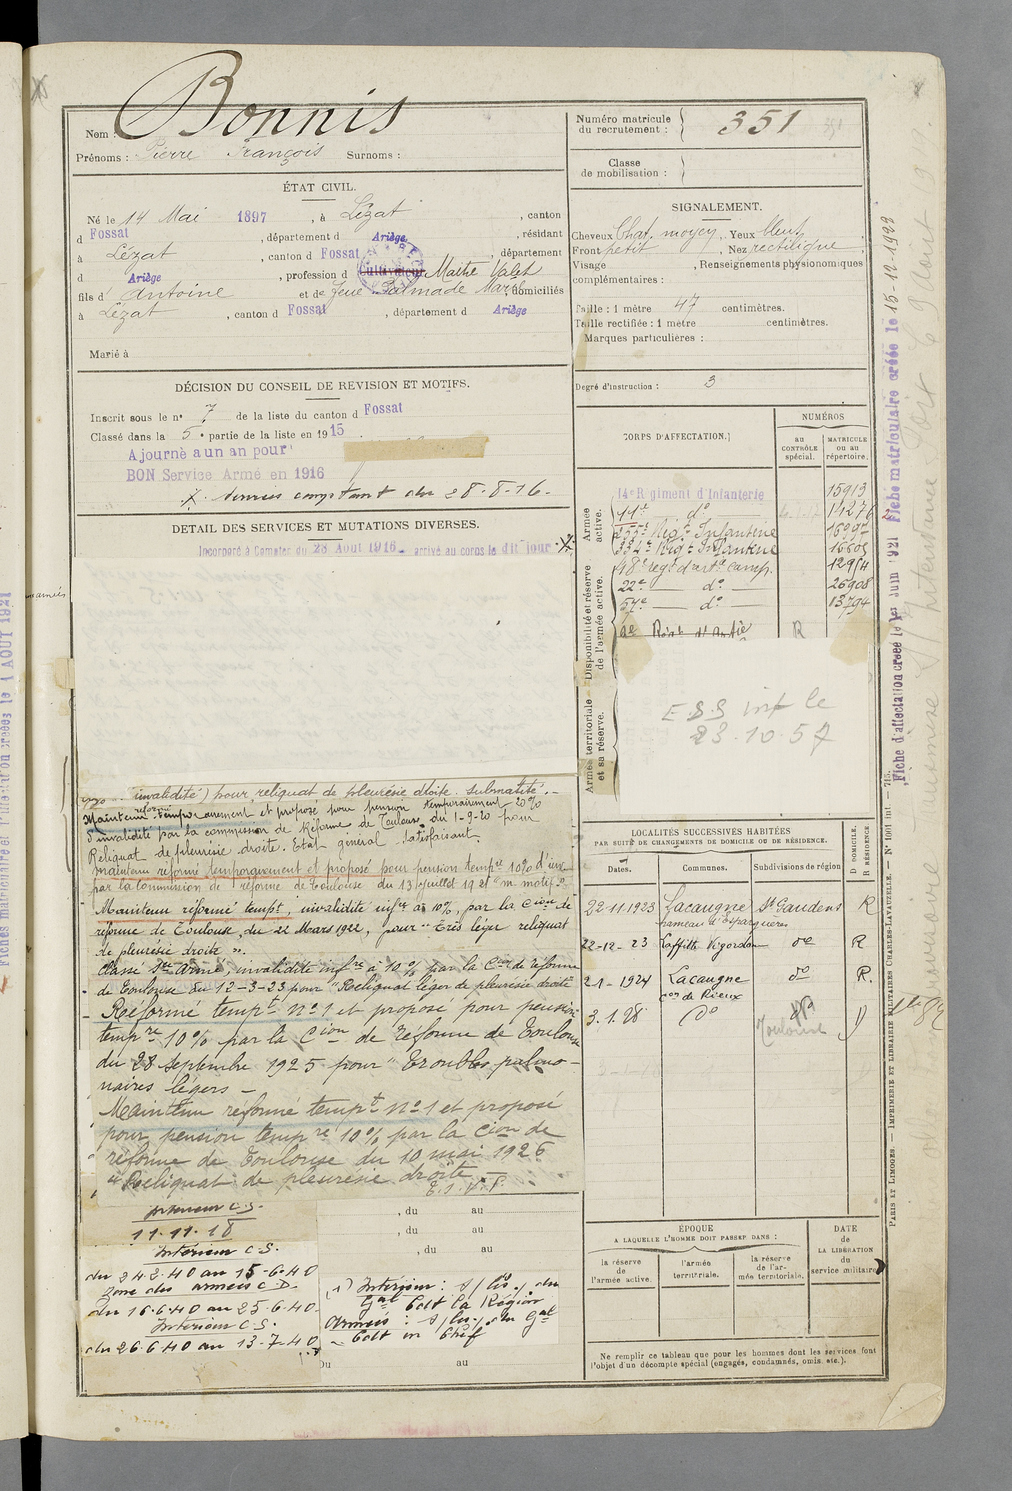 Nom : Bonnis
Prénoms : Pierre François Surnoms :
Numéro matricule du recrutement : 351
Classe de mobilisation :
ÉTAT CIVIL.
Né le 14 Mai 1897, à Lézat, canton
d Fossat, département d Ariège, résidant
à Lézat, canton d Fossat, département
d Ariège, profession d Cultivateur Maître Valet
fils d Antoine et de feue Palmade Marie domiciliés
à Lézat, canton d Fossat, département d Ariège
Marié à
SIGNALEMENT.
Cheveux Chat. moyen, Yeux bleus,
Front petit, Nez rectiligne
Visage, Renseignements physionomiques
complémentaires :
Taille : 1 mètre 47 centimètres.
Taille rectifiée : 1 mètre centimètres.
Marques particulières :
Degré d'instruction : 3
DÉCISION DU CONSEIL DE REVISION ET MOTIFS.
Inscrit sous le n° 7 de la liste du canton d Fossat
Classé dans la 5e partie de la liste en 1915
Ajourné à un an pour
BON Service Armé en 1916
X. Services comptant du 28-8-16.
DETAIL DES SERVICES ET MUTATIONS DIVERSES.
Incorporé à Compter du 28 Août 1916 arrivé au corps le dit jour
CORPS D'AFFECTATION.
NUMÉROS
au CONTRÔLE spécial.
MATRICULE ou au répertoire.
Armée active.
Disponibilité et réserve de l'armée active.
Armée territoriale et sa réserve.
14e Régiment d'Infanterie 15913
14e do 14276
Regt Infanterie
Regt Infanterie 16605
18e regt d'arte camp. 12954
22e do 26908
54e do 13794
Régt d'Artie R
ESS inf le
23.10.57
invalidité) pour reliquat de pleurésie droite. submatité.
Maintenu réformé temporairement et proposé pour pension temporairement 20%
d'invalidité par la commission de Réforme de Toulouse du 1-9-20 pour
Reliquat de pleurésie droite. Etat général satisfaisant.
Maintenu réformé temporairement et proposé pour pension tempre 10% d'inv
par la Commission de réforme de Toulouse du 13 Juillet 19 21 m motif
Maintenu réformé tempt, invalidité infre à 10%, par la Cion de
réforme de Toulouse, du 22 Mars 1922, pour "Très léger reliquat
de pleurésie droite".
Classé Sce Armé, invalidité infre à 10% par la Cion de réforme
de Toulouse du 12-3-23 pour "Reliquat léger de pleurésie droite"
Réformé tempt n°1 et proposé pour pension
tempre 10% par la Cion de Réforme de Toulouse
du 28 Septembre 1925 pour "Troubles pulmo-
naires légers -
Maintenu réformé tempt n°1 et proposé
pour pension tempre 10% par la Cion de
réforme de Toulouse du 10 mai 1926
"Reliquat de pleurésie droite
Intérieur C.S.
11.11.18
Intérieur C.S.
du 24-2-40 au 15-6-40
Zone des armées C.D.
du 16-6-40 au 25-6-40
Intérieur C.S.
du 26-6-40 au 13-7-40
, du au
, du au
, du au
Intérieur : du
Gal Cdt la Région
Armées : du Gal
Cdt en Chef
Du au
LOCALITÉS SUCCESSIVES HABITÉES
PAR SUITE DE CHANGEMENTS DE DOMICILE OU DE RÉSIDENCE.
Dates. Communes. Subdivisions de région D DOMICILE. R RÉSIDENCE
22-11-1923 Lacaugne St Gaudens R
hameau d'Esparguières
22-12-23 Laffitte Vigordan do R
2-1-1924 Lacaugne do R.
con de Rieux
3.1.28 do Toulouse D
ÉPOQUE
A LAQUELLE L'HOMME DOIT PASSER DANS :
la réserve de l'armée active.
l'armée territoriale.
la réserve de l'armée territoriale.
DATE de LA LIBÉRATION du service militaire
Ne remplir ce tableau que pour les hommes dont les services font
l'objet d'un décompte spécial (engagés, condamnés, omis, etc.).
Fiche d'affectation créée le 1er Juin 1921 Fiche matriculaire créée le 15-12-1923
PARIS ET LIMOGES. — IMPRIMERIE ET LIBRAIRIE MILITAIRES CHARLES-LAVAUZELLE. — N° 1001 int. — 715.
créées le 1 AOUT 1921